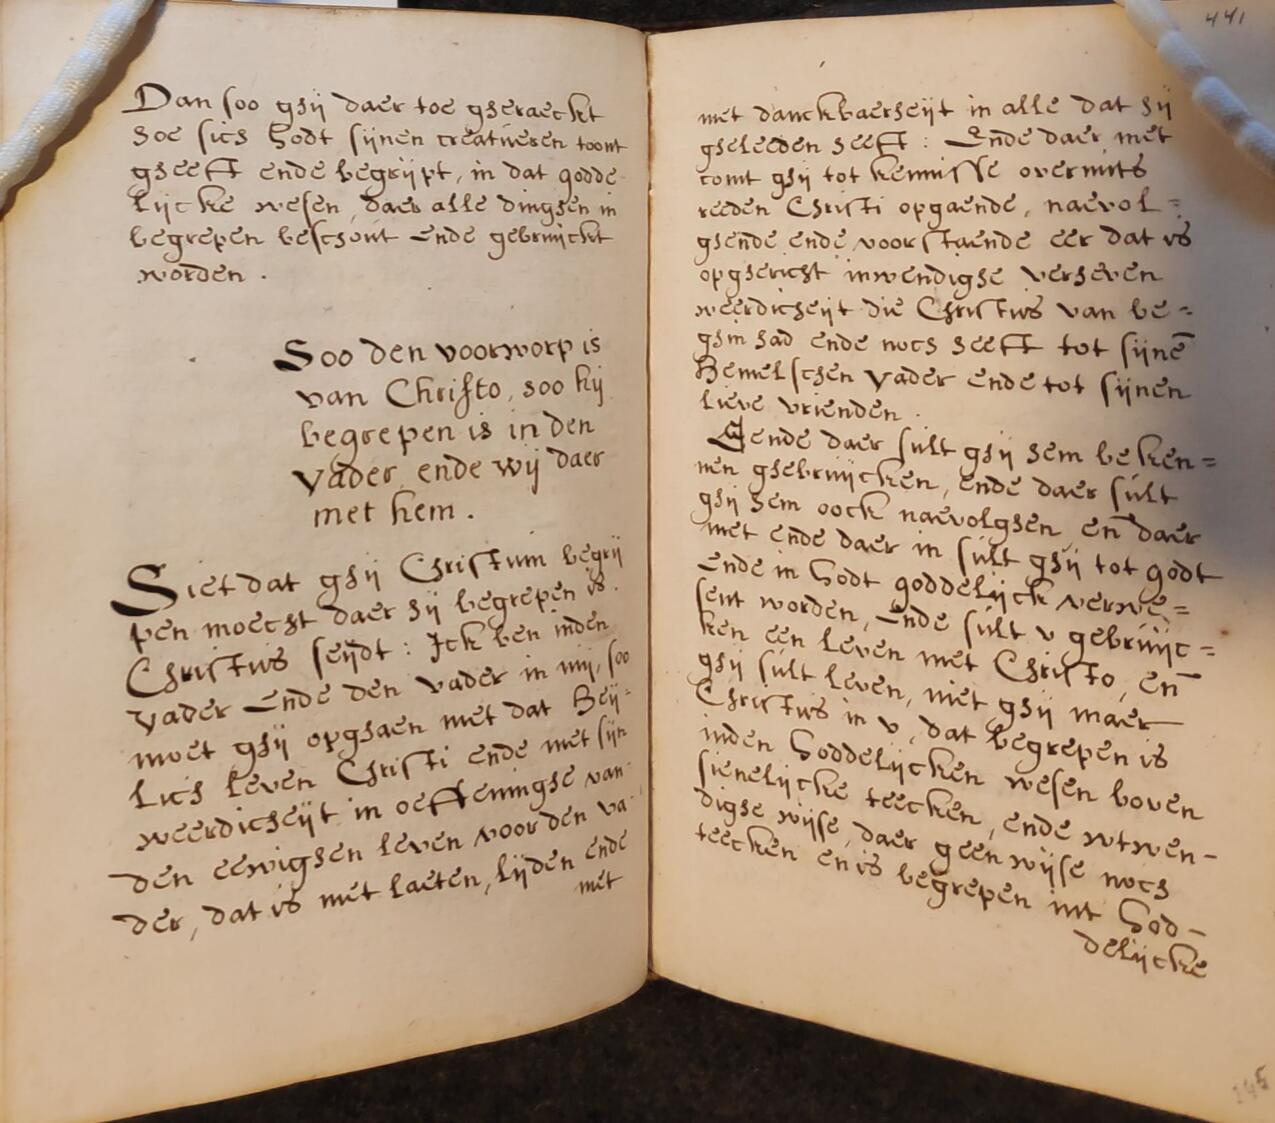 Dan soo ghij daer toe gheraeckt
hoe sich Godt sijnen creatueren toont
gheeft ende begrijpt, in dat godde
lijcke wesen, daer alle dinghen in
begrepen beschout ende gebruijckt
worden.
Soo den voorworp is
van Christo, soo hij
begrepen is in den
Vader, ende wij daer
met hem.
Siet dat ghij Christum begrij
pen moecht daer hij begrepen is.
Christus seijdt: Ick ben inden
Vader Ende den Vader in mij, soo
moet ghij opghaen met dat Heij-
lich leven Christi ende met sijn
weerdicheijt in oeffeninghe van
den eewighen leven voor den va-
der, dat is met laeten, lijden ende
met
441
met danckbaerheijt in alle dat hij
gheleeden heeft: Ende daer met
comt ghij tot kennisse overmits
reeden Christi opgaende, naevol=
ghende ende voorstaende eer dat is
opghericht inwendighe verheven
weerdicheijt die Christus van be=
ghin had ende noch heeft tot sijnē
Hemelschen Vader ende tot sijnen
lieve vrienden.
Eende daer sult ghij hem beken=
nen ghebruijcken, ende daer sult
ghij hem oock naevolghen, en̄ daer
met ende daer in sult ghij tot godt
Ende in Godt goddelijck verwe=
sent worden, Ende sult v gebruijc=
ken een leven met Christo, en̄
ghij sult leven, niet ghij maer
Christus in v, dat begrepen is
inden Goddelijcken wesen boven
sienelijcke teecken, ende wtwen-
dighe wijse, daer geen wijse noch
teecken en is begrepen int God-
delijcke